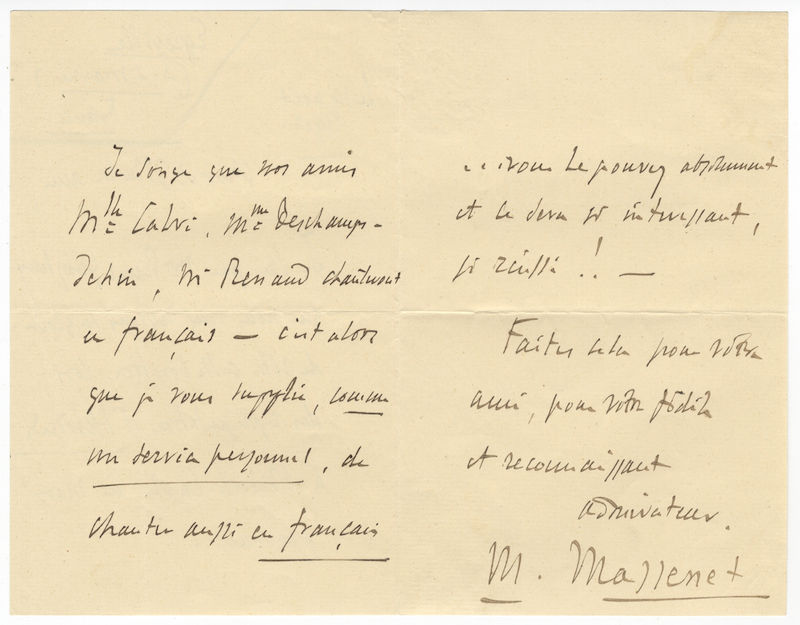 Je songe que nos amis
Mlle Calvé, Mme Deschamps-
Jehin, Mr Renaud chanteront
en français — c'est alors
que je vous supplie, comme
un service personnel, de
chanter aussi en français
...vous le pouvez absolument
et ce sera si intéressant,
si réussi !! —
Faites cela pour votre
ami, pour votre fidèle
et reconnaissant
admirateur.
M. Massenet